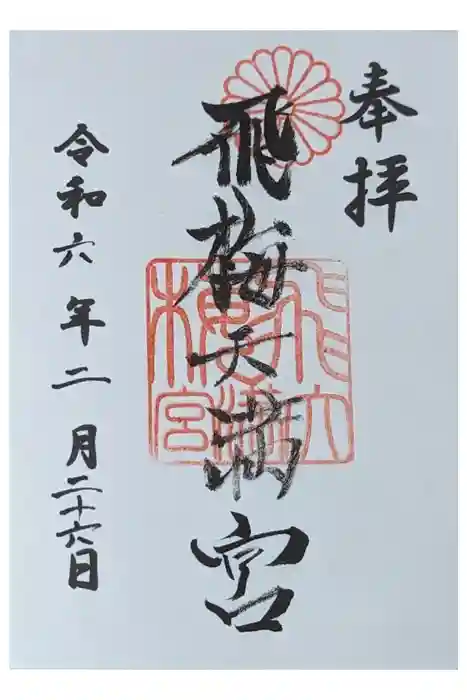 奉拝
飛梅天満宮
飛梅天満宮
令和六年二月二十六日